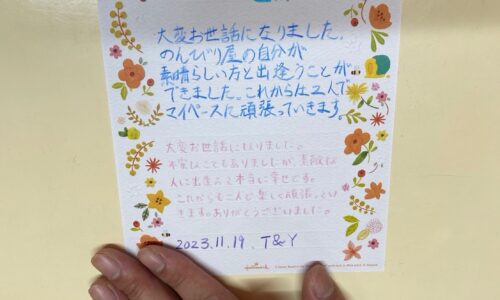 大変お世話になりました。
のんびり屋の自分が
素晴らしい方と出逢うことが
できました。これからは2人で
マイペースに頑張っていきます。
大変お世話になりました。
不安なこともありましたが、素敵な
人に出会えて本当に幸せです。
これからも二人で楽しく頑張ってい
きます。ありがとうございました。
2023.11.19 T&Y
Hallmark